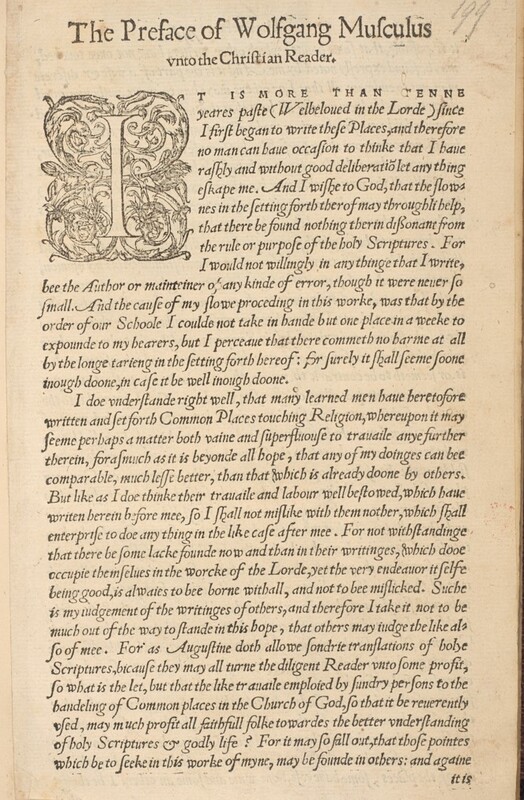 199
The Preface of Wolfgang Musculus
vnto the Christian Reader.
IT IS MORE THAN TENNE
yeares paste (Welbeloued in the Lorde) since
I first began to write these Places, and therefore
no man can haue occasion to thinke that I haue
rashly and without good deliberatiō let any thing
eskape me. And I wishe to God, that the slow-
nes in the setting forth therof may throughli help,
that there be found nothing therin dissonant from
the rule or purpose of the holy Scriptures. For
I would not willingly in any thinge that I write,
bee the Author or mainteiner of any kinde of error, though it were neuer so
small. And the cause of my slowe proceding in this worke, was that by the
order of our Schoole I coulde not take in hande but one place in a weeke to
expounde to my hearers, but I perceaue that there commeth no harme at all
by the longe tarieng in the setting forth hereof: for surely it shall seeme soone
inough doone, in case it be well inough doone.
I doe vnderstande right well, that many learned men haue heretofore
written and set forth Common Places touching Religion, whereupon it may
seeme perhaps a matter both vaine and superfluouse to trauaile anye further
therein, forasmuch as it is beyonde all hope, that any of my doinges can bee
comparable, much lesse better, than that which is already doone by others.
But like as I doe thinke their trauaile and labour well bestowed, which haue
writen herein before mee, so I shall not mislike with them nother, which shall
enterprise to doe any thing in the like case after mee. For not withstandinge
that there be some lacke founde now and than in their writinges, which dooe
occupie themselues in the worcke of the Lorde, yet the very endeauor it selfe
being good, is alwaies to bee borne withall, and not to bee mislicked. Suche
is my iudgement of the writinges of others, and therefore I take it not to be
much out of the way to stande in this hope, that others may iudge the like al-
so of mee. For as Augustine doth allowe sondrie translations of holye
Scriptures, bicause they may all turne the diligent Reader vnto some profit,
so what is the let, but that the like trauaile emploied by sundry persons to the
handeling of Common places in the Church of God, so that it be reuerently
vsed, may much profit all faithfull folke towardes the better vnderstanding
of holy Scriptures & godly life? For it may so fall out, that those pointes
which be to seeke in this worke of myne, may be founde in others: and againe
it is